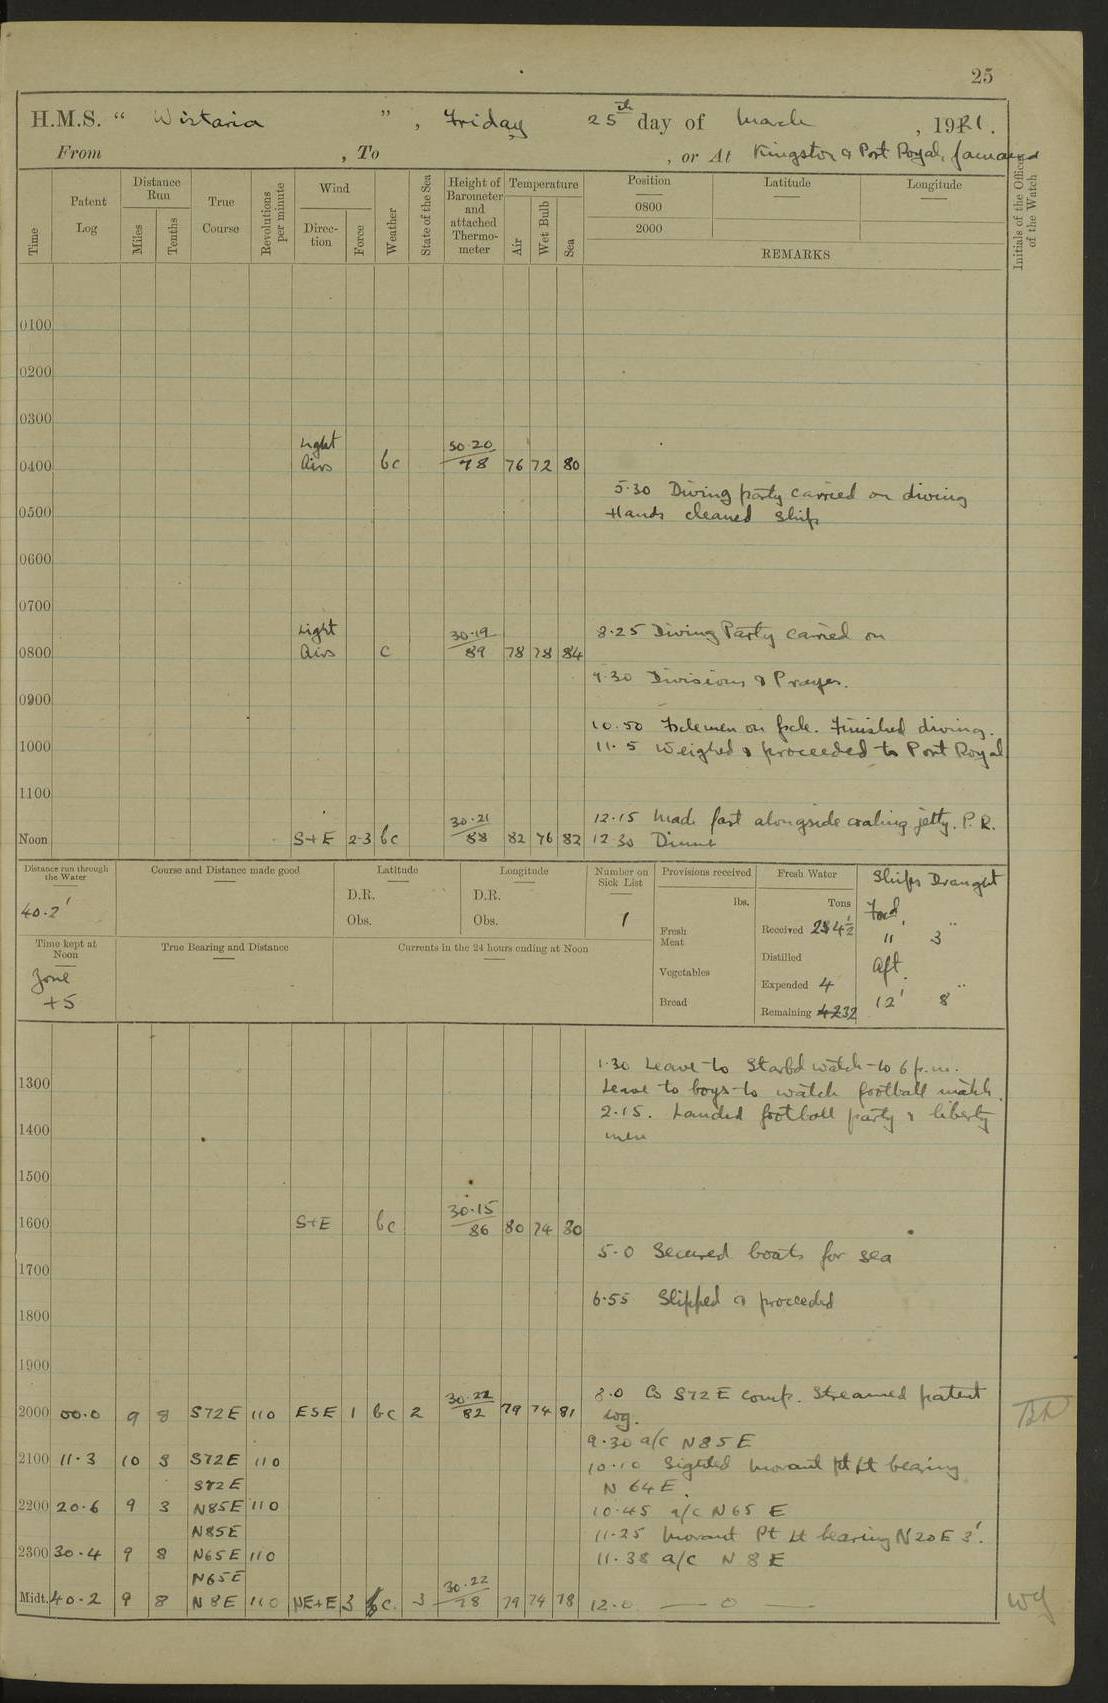 25
H.M.S. “ Wistaria ” , Friday 25th day of March , 1921.
From , To , or At Kingston & Port Royal, Jamaica
Time
Patent Log
Distance Run
Miles
Tenths
True Course
Revolutions per minute
Wind
Direction
Force
Weather
State of the Sea
Height of Barometer and attached Thermometer
Temperature
Air
Wet Bulb
Sea
Position Latitude Longitude
0800
2000
REMARKS
Initials of the Officer of the Watch
0100
0200
0300
Light 30.20
0400 Airs bc 78 76 72 80
5.30 Diving party carried on diving
0500 Hands cleaned ship
0600
0700
Light 30.19 8.25 Diving Party carried on
0800 Airs c 89 78 78 84
9.30 Divisions & Prayers.
0900
10.50 Fxlemen on fxle. Finished diving.
1000 11.5 Weighed & proceeded to Port Royal
1100
30.21 12.15 Made fast alongside coaling jetty. P.R.
Noon S+E 2-3 bc 88 82 76 82 12.30 Dinner
Distance run through the Water
40.2'
Course and Distance made good
Latitude
D.R.
Obs.
Longitude
D.R.
Obs.
Number on Sick List
1
Provisions received
lbs.
Fresh Meat
Vegetables
Bread
Fresh Water
Tons
Received
Distilled
Expended 4
Remaining
Ships Draught
Ford.
11' 3"
Aft.
12' 8"
Time kept at Noon
Zone +5
True Bearing and Distance
Currents in the 24 hours ending at Noon
1.30 Leave to Starbd watch to 6 p.m.
1300 Leave to boys to watch football match.
2.15. Landed football party & liberty
1400 men
1500
30.15
1600 S+E bc 86 80 74 80
5.0 Secured boats for sea
1700
6.55 Slipped & proceeded
1800
1900
30.22 8.0 Co S72E comp. Streamed patent
2000 00.0 9 8 S72E 110 ESE 1 bc 2 82 79 74 81 log.
9.30 a/c N85E
2100 11.3 10 8 S72E 110 10.10 Sighted Morant Pt Lt bearing
S72E N 64 E.
2200 20.6 9 3 N85E 110 10.45 a/c N65 E
N85E 11.25 Morant Pt Lt bearing N20E 3'.
2300 30.4 9 8 N65E 110 11.38 a/c N 8 E
N65E 30.22
Midt. 40.2 9 8 N8E 110 NE+E 3 bc. 3 78 79 74 78 12.0 — 0 —